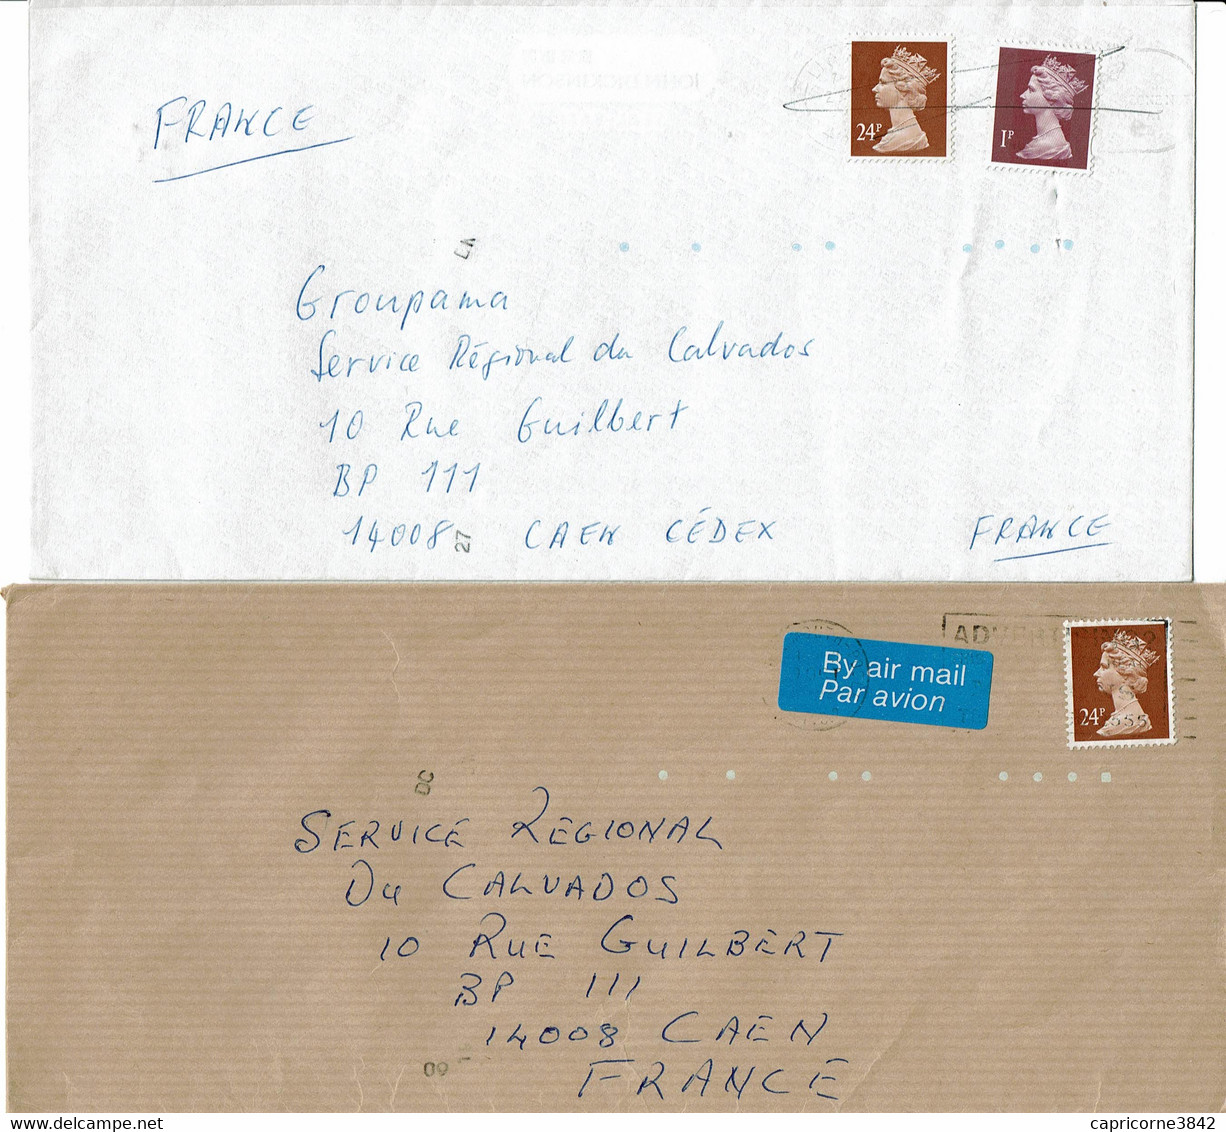 FRANCE
24P
1P
27
Groupama
Service Régional du Calvados
10 Rue Guilbert
BP 111
14008 CAEN CÉDEX
FRANCE
By air mail
Par avion
24P
555
DC
SERVICE REGIONAL
DU CALVADOS
10 RUE GUILBERT
BP 111
14008 CAEN
FRANCE
09
capricorne3842